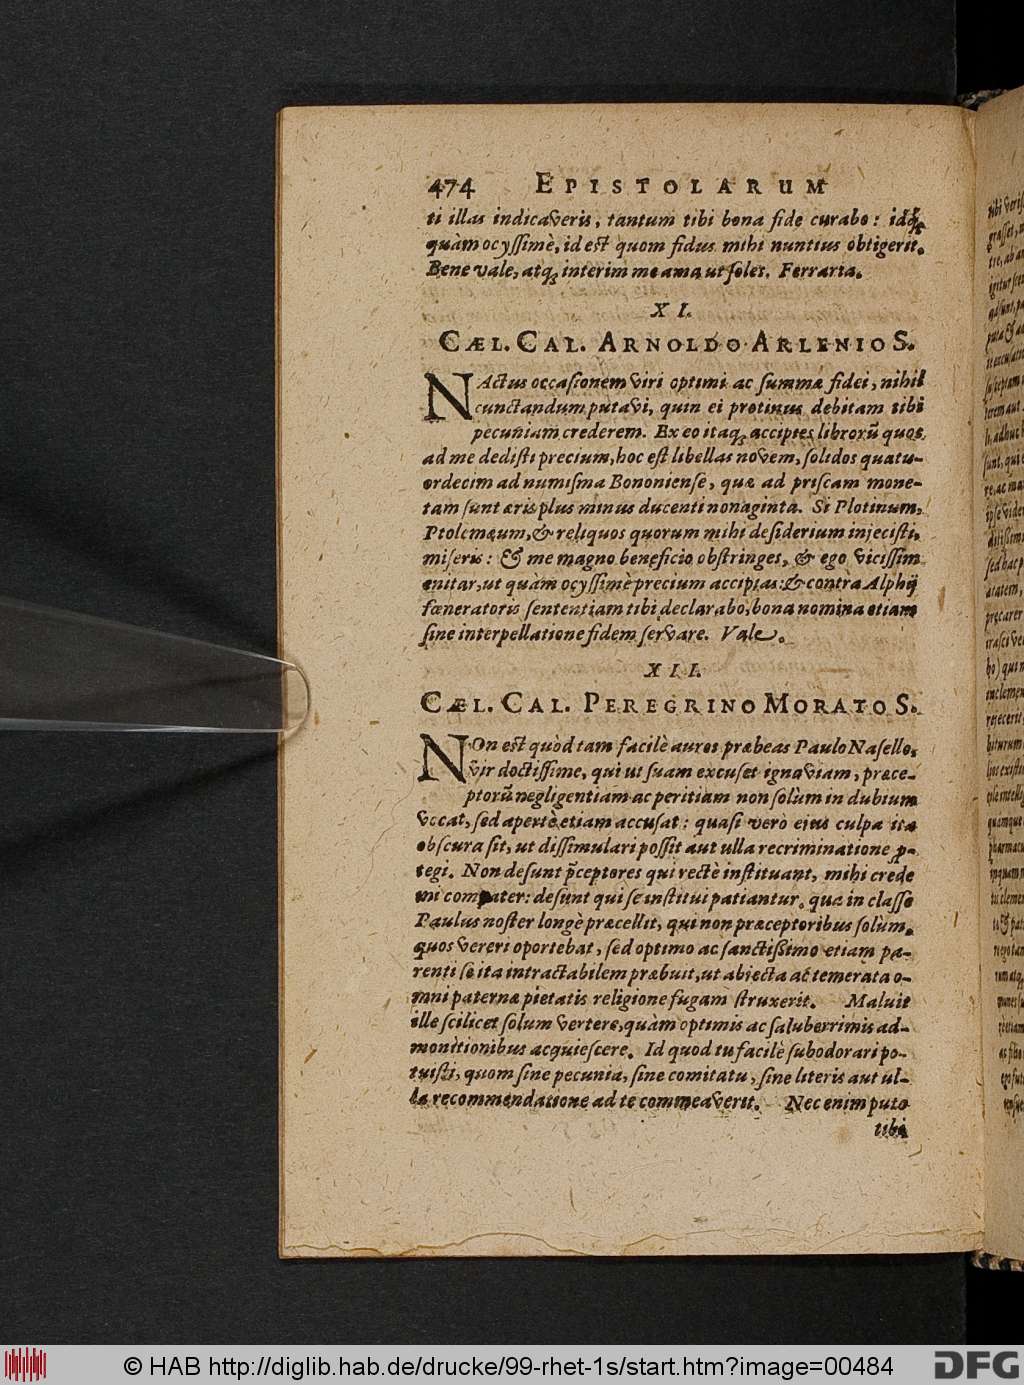 474 EPISTOLARUM
ti illas indicaveris, tantum tibi bona fide curabo: idq́;
quàm ocyssimè, id est quom fidus mihi nuntius obtigerit.
Bene vale, atq; interim me ama ut soles. Ferraria.
XI.
CÆL. CAL. ARNOLDO ARLENIO S.
NActus occasionem viri optimi ac summæ fidei, nihil
cunctandum putavi, quin ei protinus debitam tibi
pecuniam crederem. Ex eo itaq; accipies librorū quos
ad me dedisti precium, hoc est libellas novem, solidos quatu-
ordecim ad numisma Bononiense, quæ ad priscam mone-
tam sunt æris plus minus ducenti nonaginta. Si Plotinum,
Ptolemæum, & reliquos quorum mihi desiderium injecisti,
miseris: & me magno beneficio obstringes, & ego vicissim
enitar, ut quàm ocyssimè precium accipias: & contrà Alphij
fœneratoris sententiam tibi declarabo, bona nomina etiam
sine interpellatione fidem servare. Vale.
XII.
CÆL. CAL. PEREGRINO MORATO S.
NOn est quòd tam facilè aures præbeas Paulo Nasello,
vir doctissime, qui ut suam excuset ignaviam, præce-
ptorū negligentiam ac peritiam non solùm in dubium
vocat, sed apertè etiam accusat: quasi verò ejus culpa ita
obscura sit, ut dissimulari possit aut ulla recriminatione ꝓ-
tegi. Non desunt p̄ceptores qui rectè instituant, mihi crede
mi compater: desunt qui se institui patiantur. qua in classe
Paulus noster longè præcellit, qui non præceptoribus solùm,
quos vereri oportebat, sed optimo ac sanctißimo etiam pa-
renti se ita intractabilem præbuit, ut abjecta ac temerata o-
mni paternæ pietatis religione fugam struxerit. Maluit
ille scilicet solum vertere, quàm optimis ac saluberrimis ad-
monitionibus acquiescere. Id quod tu facilè subodorari po-
tuisti, quom sine pecunia, sine comitatu, sine literis aut ul-
la recommendatione ad te commeaverit. Nec enim puto
tibi
© HAB http://diglib.hab.de/drucke/99-rhet-1s/start.htm?image=00484
DFG